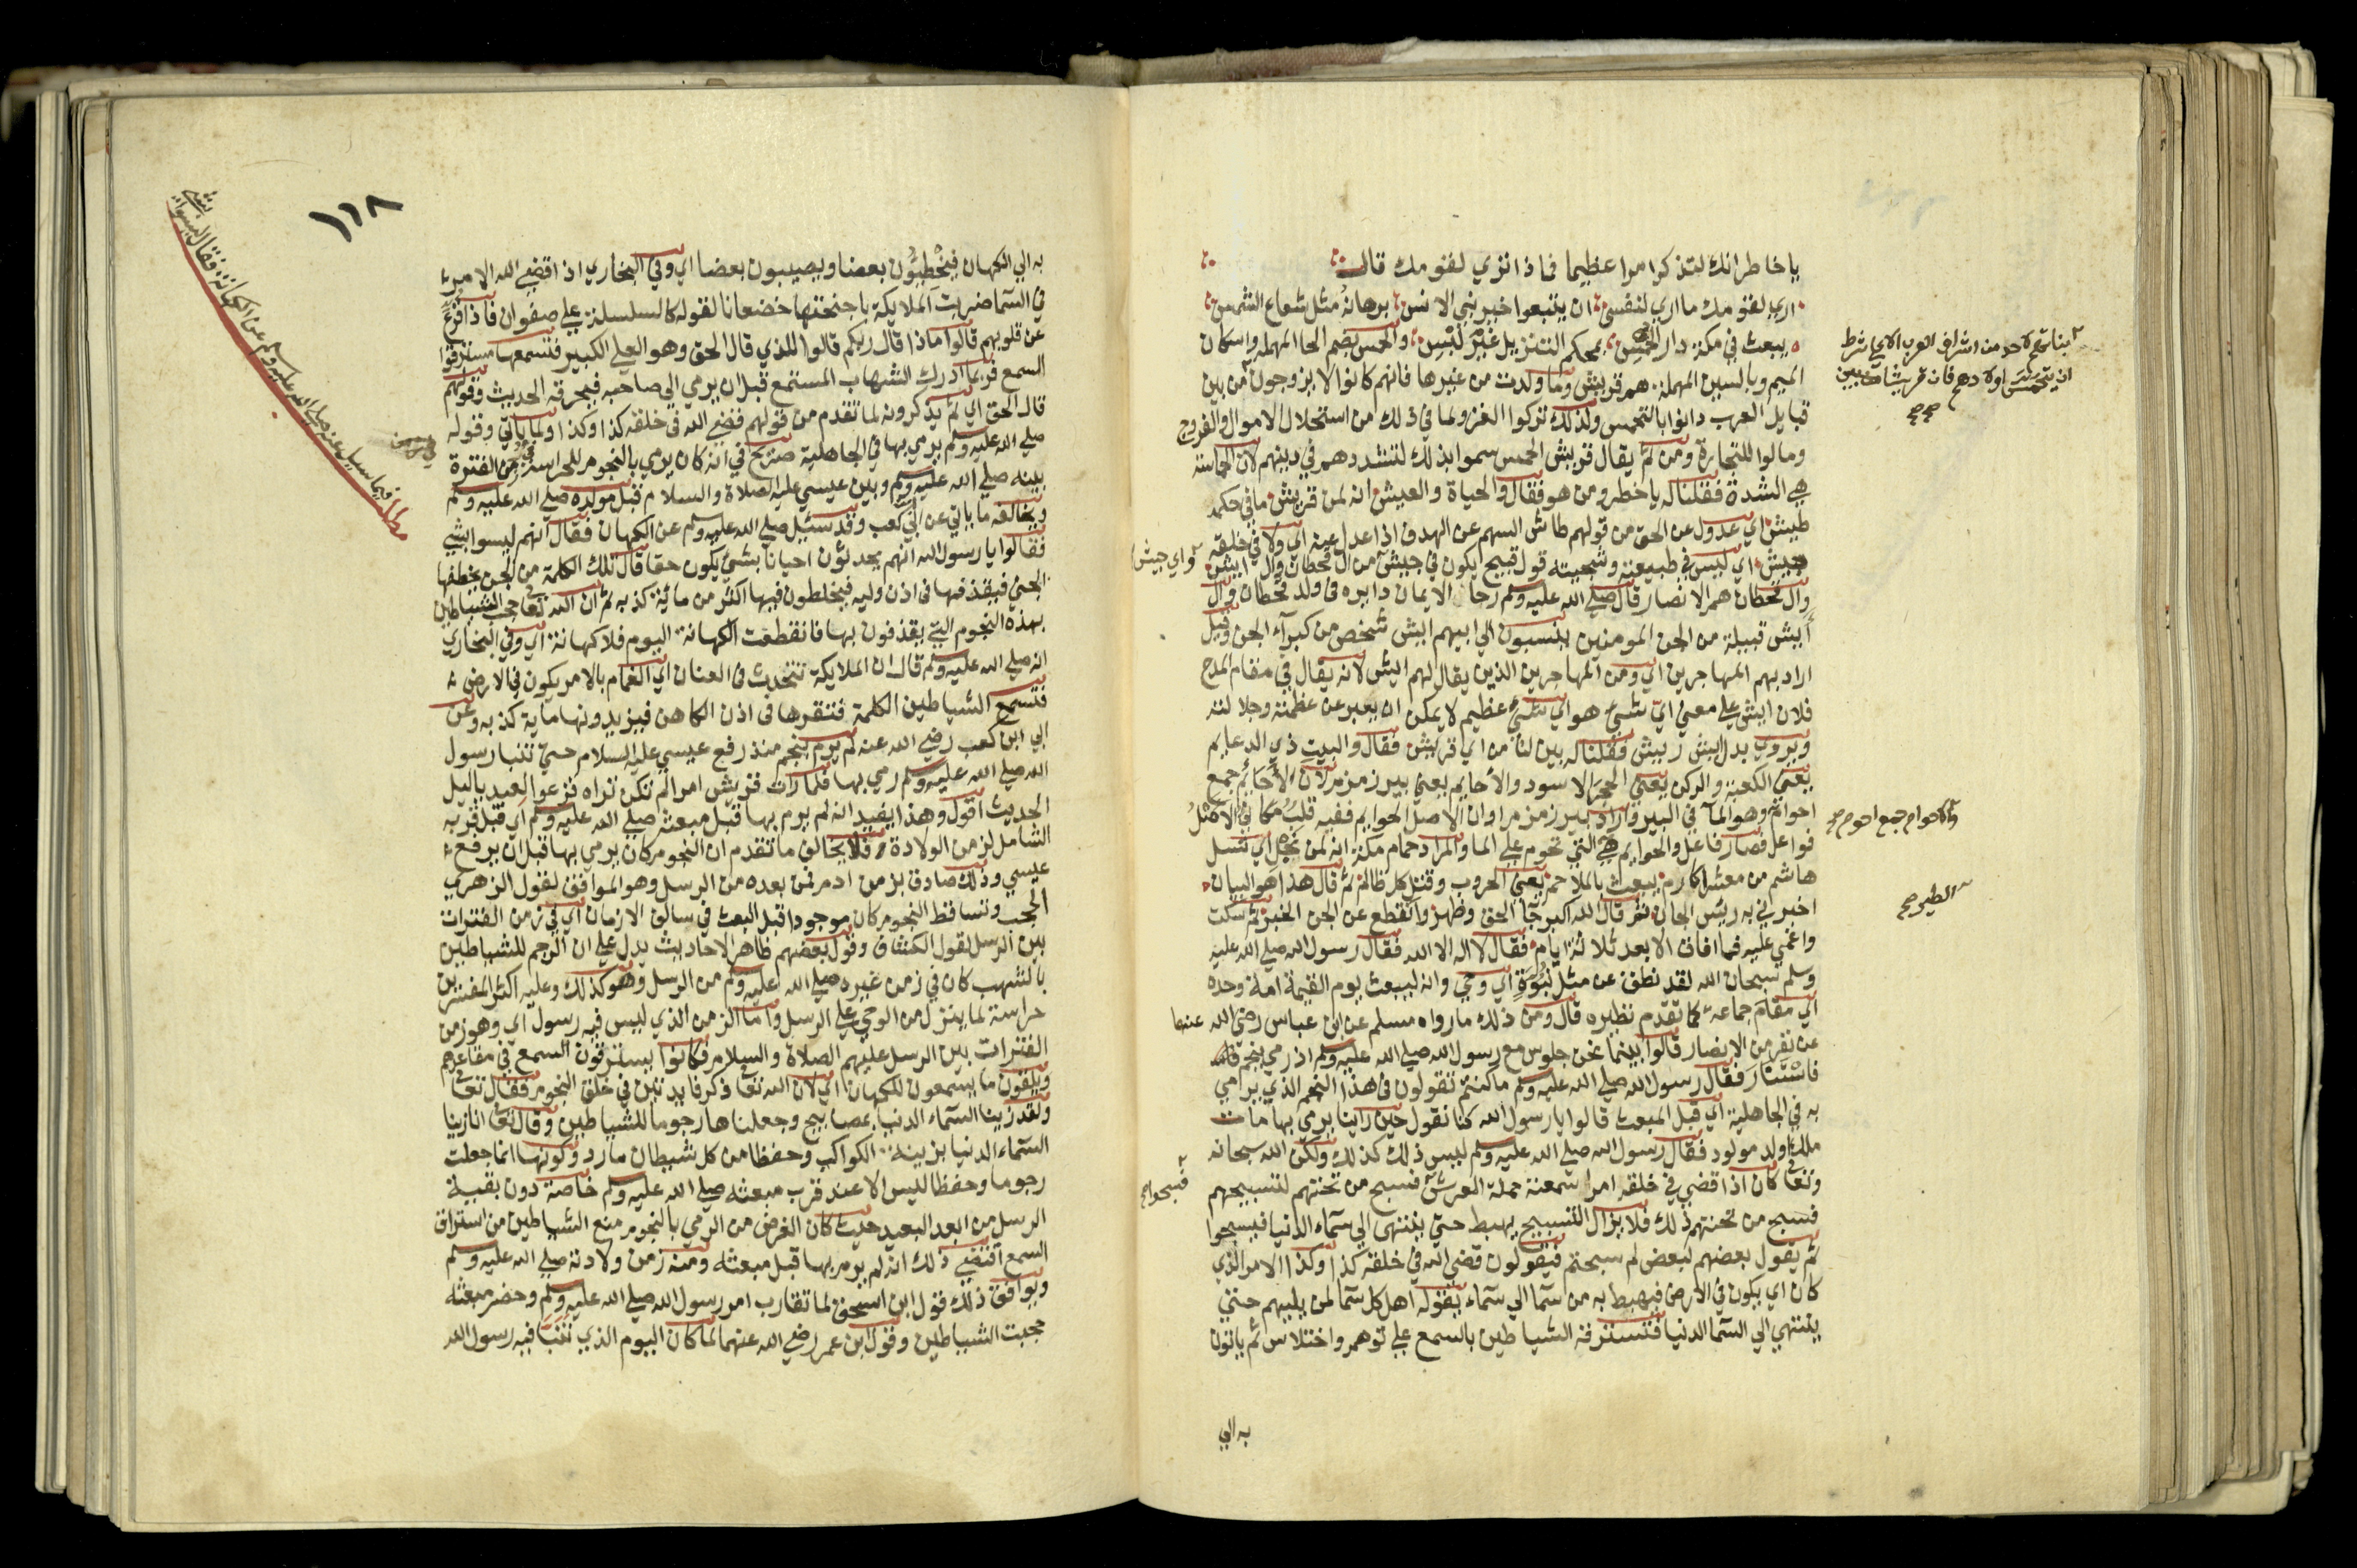 يا خاطرانك لتذكرا مرا عظيما فاذا تري لقومك قال
اري لقومك ما اري لنفسي ان يتبعوا خير نبي الانس برهانه مثل شعاع الشمس
يبعث في مكة دار الحمس بمحكم التنزيل غير لبس والحمس بضم الحا المهملة واسكان
الميم وبالسين المهملة هم قريش وما ولدت من غيرها فانهم كانوا لا يزوجون من بين
قبايل العرب دانوا بالتحمس ولذلك تركوا الغزو لما في ذلك من استحلال الاموال والفروج
ومالوا للتجارة ومن ثم يقال قريش الحمس سموا بذلك لتشددهم في دينهم لان الحماسة
هي الشدة فقلنا له يا خطر ومن هو فقال والحياة والعيش انه لمن قريش ما في حكمه
طيش اي عدول عن الحق من قولهم طاش السهم عن الهدف اذا عدل عنه اي ولا في خلقه
جيش اي ليس في طبيعته وشجيته قول قبيح يكون في جيش من ال قحطان وال ايش
وال قحطان هم الانصار قال صلى الله عليه وسلم رحا الايمان دايره في ولد قحطان وال
أيش قبيلة من الجن المومنين ينسبون الي ابيهم ايش شخص من كبرآء الجن وقيل
اراد بهم المهاجرين اي ومن المهاجرين الذين يقال لهم ايش لانه يقال في مقام المدح
فلان ايش علي معني اي شيء هو اي شيء عظيم لا يمكن ان يعبر عن عظمته وجلالته
ويروي بدل ايش ريش فقلنا له بين لنا من اي قريش فقال والبيت ذي الدعايم
يعني الكعبة والركن يعني الحجر الاسود والأحايم يعني بير زمزم لان الأحايم جمع
احوام وهو المآ في البير واراد بير زمزم او ان الاصل الحوايم ففيه قلب مكاني الاصل
فواعل فصار فاعل والحوايم هي التي تحوم علي الما والمراد حمام مكة انه لمن نجل اي نسل
هاشم من معشر اكارم يبعث بالملاحم يعني الحروب وقتل كل ظالم ثم قال هذا هو البيان
اخبرني به ريس الجان ثم قال الله اكبر جا الحق وظهر وانقطع عن الجن الخبر ثم سكت
واغمي عليه فما افاق الا بعد ثلاثة ايام فقال لا اله الا الله فقال رسول الله صلى الله عليه
وسلم سبحان الله لقد نطق عن مثل نبوة اي وحي وانه ليبعث يوم القيمة امة وحده
اي مقام جماعة كما تقدم نظيره قال ومن ذلك ما رواه مسلم عن ابن عباس رضي الله عنهما
عن نفر من الانصار قالوا بينما نحن جلوس مع رسول الله صلى الله عليه وسلم اذ رمي بنجم
فاستنار فقال رسول الله صلى الله عليه وسلم ما كنتم تقولون في هذا النجم الذي يرامي
به في الجاهلية اي قبل المبعث قالوا يا رسول الله كنا نقول حين راينا يرمي بها مات
ملك اولد مولود فقال رسول الله صلى الله عليه وسلم ليس ذلك كذلك ولكن الله سبحانه
وتعا كان اذا قضي في خلقه امرا سمعته حملة العرش فسبح من تحتهم لتسبيحهم
فسبح من تحتهم ذلك فلا يزال التسبيح يهبط حتي ينتهى الي سمآء الدنيا فيسبحوا
ثم يقول بعضهم لبعض لم سبحتم فيقولون قضي الله في خلقه كذا وكذا الامر الذي
كان اي يكون في الارض فيهبط به من سمآ الي سمآء يقوله اهل كل سمآ لمن يليهم حتي
ينتهي الي السمآ الدنيا فتسترقه الشياطين بالسمع علي توهم واختلاس ثم ياتون
به الي
ابناتهم لاحد من اشراف العرب الا علي شرط
ان يتحمس اولادهم فان قريشا من بين
او اي جيش
والاحوام جمع احوم صح
الطير صح
فسبحوا
١٦٨
به الي الكهان فيخطئون بعضا ويصيبون بعضا اي وفي البخاري اذا قضي الله الامر
في السمآ ضربت الملايكة باجنحتها خضعانا لقوله كالسلسلة علي صفوان فاذا فزع
عن قلوبهم قالوا ماذا قال ربكم قالوا للذي قال الحق وهو العلي الكبير فتسمعها مسترقوا
السمع فربما ادرك الشهاب المستمع قبل ان يرمي الي صاحبه فيحرقه الحديث وقولهم
قال الحق اي ثم يذكرونه لما تقدم من قولهم قضي الله في خلقه كذا وكذا ولما ياتي وقوله
صلي الله عليه وسلم يرمي بها في الجاهلية صريح في انه كان يرمي بالنجوم للحراسة زمن الفترة
بينه صلى الله عليه وسلم وبين عيسي عليه الصلاة والسلام قبل مولده صلى الله عليه وسلم
ويخالفه ما ياتي عن ابي كعب وقد سئيل صلي الله عليه وسلم عن الكهان فقال انهم ليسوا بشي
فقالوا يا رسول الله انهم يحدثون احيانا بشيء يكون حقا قال تلك الكلمة من الجن يخطفها
الجني فيقذفها في اذن وليه فيخلطون فيها اكثر من ماية كذبه ثم ان الله تعا حجب الشياطين
بهذه النجوم التي يقذفون بها فانقطعت الكهانة اليوم فلا كهانة اي وفي البخاري
انه صلي الله عليه وسلم قال ان الملايكة تتحدث في العنان اي الغمام بالامر يكون في الارض
فتسمع الشياطين الكلمة فتقرها في اذن الكاهن فيزيدونها ماية كذبه وعن
ابي ابن كعب رضي الله عنه لم يرم بنجم منذ رفع عيسي عليه السلام حتي تنبا رسول
الله صلي الله عليه وسلم رمي بها فلما رات قريش امرا لم تكن تراه فزعوا لعبد ياليل
الحديث اقول وهذا يفيد انه لم يرم بها قبل مبعثه صلي الله عليه وسلم اي قبل قربه
الشامل لزمن الولادة فلا يخالف ما تقدم ان النجوم كان يرمي بها قبل ان يرفع
عيسي وذلك صادق بزمن ادم فمن بعده من الرسل وهو الموافق لقول الزهري
الحجب وتساقط النجوم كان موجودا قبل البعث في سالف الازمان اي في زمن الفترات
بين الرسل لقول الكشاف وقول بعضهم ظاهر الاحاديث يدل علي ان الرجم للشياطين
بالشهب كان في زمن غيره صلي الله عليه وسلم من الرسل وهو كذلك وعليه اكثر المفسرين
حراسة لما ينزل من الوحي علي الرسل واما الزمن الذي ليس فيه رسول اي وهو زمن
الفترات بين الرسل عليهم الصلاة والسلام فكانوا يسترقون السمع في مقاعدهم
ويلقون ما يسمعون للكهان اي لان الله تعا ذكر فايدتين في خلق النجوم فقال تعا
ولقد زينا السمآء الدنيا بمصابيح وجعلناها رجوما للشياطين وقال تعا انا زينا
السمآء الدنيا بزينة الكواكب وحفظا من كل شيطان مارد وكونها انما جعلت
رجوما وحفظا ليس الا عند قرب مبعثه صلي الله عليه وسلم خاصة دون بقية
الرسل من ابعد البعيد حيث كان الغرض من الرمي بالنجوم منع الشياطين من استراق
السمع اقتضي ذلك انه لم يرم بها قبل مبعثه ومنه زمن ولادته صلي الله عليه وسلم
ويوافق ذلك قول ابن اسحق لما تقارب امر رسول الله صلي الله عليه وسلم وحضر مبعثه
حجبت الشياطين وقول ابن عمر رضي الله عنهما لما كان اليوم الذي تنبا فيه رسول الله
مطلب فيما سيل عنه صلي الله عليه وسلم عن الكهانة فقال ليسوا
بشي